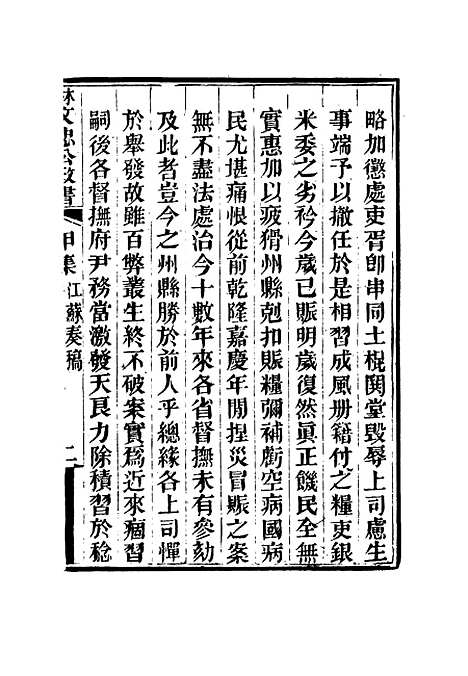 略加懲處吏胥卽串同土棍鬨堂毀辱上司慮生
事端予以撤任於是相習成風册籍付之糧吏銀
米委之劣衿今歲已賑明歲復然眞正饑民全無
實惠加以疲猾州縣剋扣賑糧彌補虧空病國病
民尤堪痛恨從前乾隆嘉慶年閒揑災冒賑之案
無不盡法處治今十數年來各省督撫未有參劾
及此者豈今之州縣勝於前人乎總緣各上司憚
於舉發故雖百弊叢生終不破案實爲近來痼習
嗣後各督撫府尹務當激發天良力除積習於稔
林文忠公政書 甲集 江蘇奏稿 二